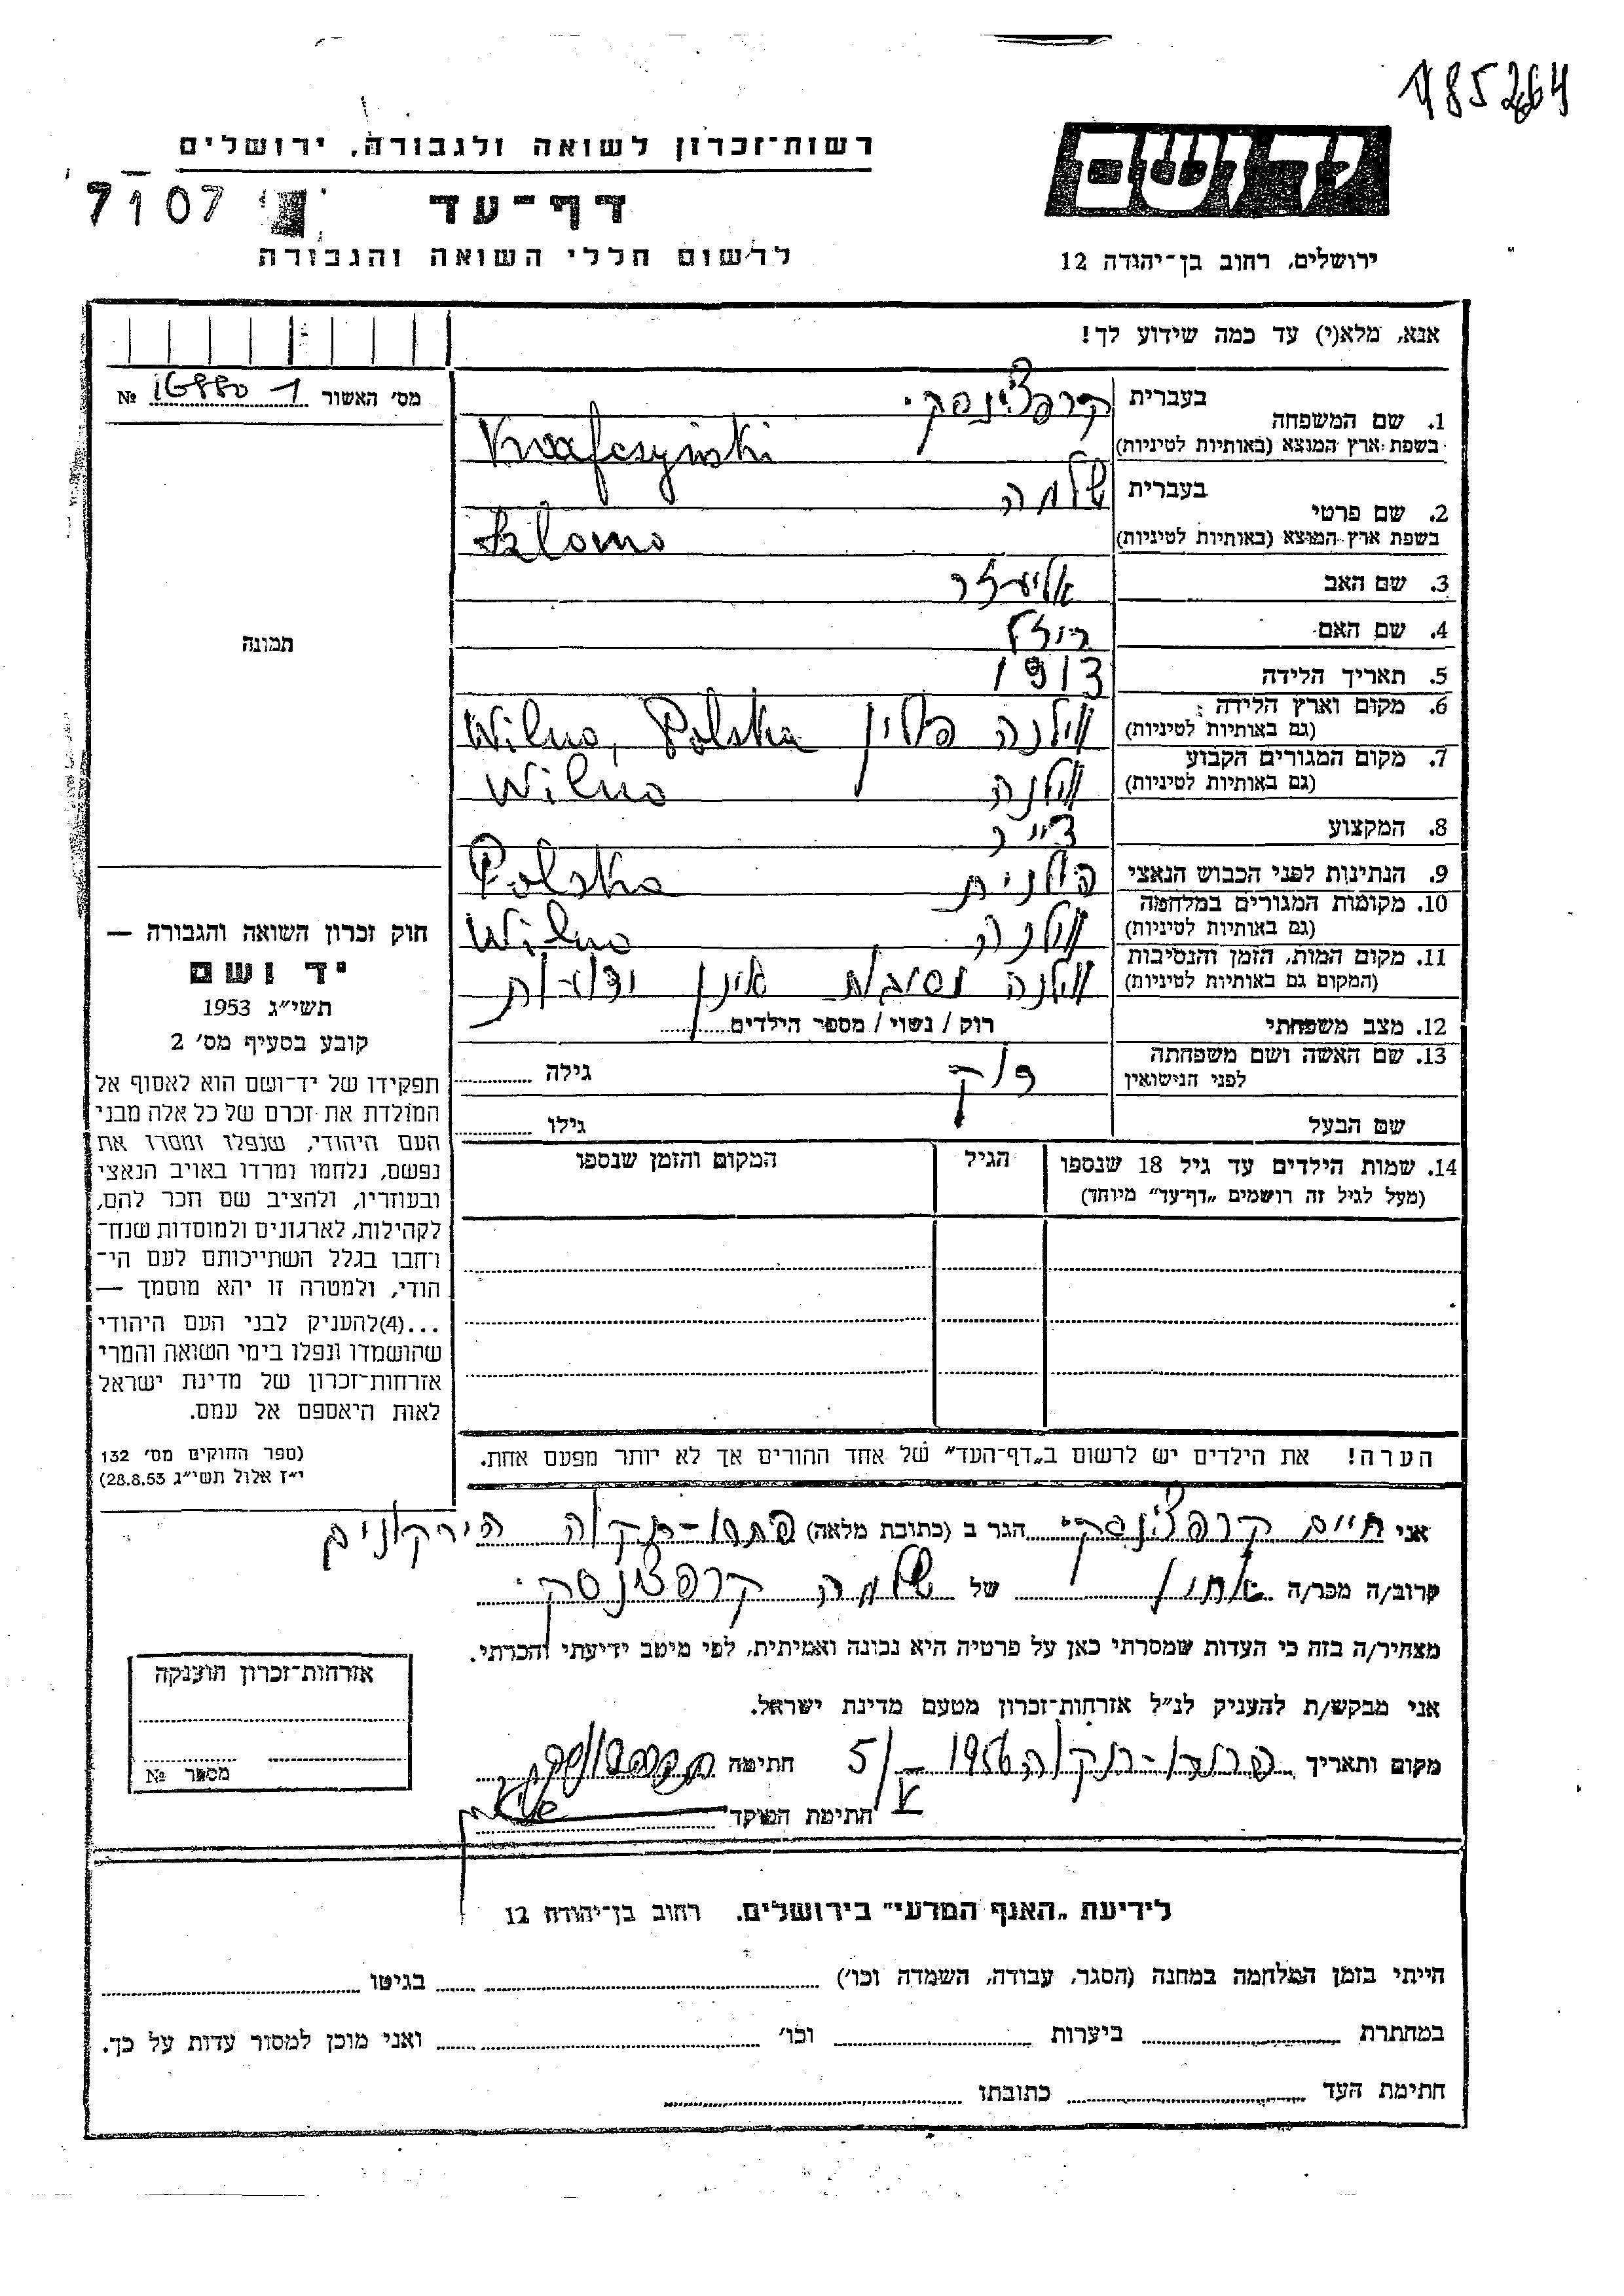 185264
רשות־זכרון לשואה ולגבורה, ירושלים
7107
דף־עד
לרשום חללי השואה והגבורה
יד ושם
ירושלים, רחוב בן־יהודה 12
אנא, מלא(י) עד כמה שידוע לך!
מס׳ האשור 16880 1 №
1. שם המשפחה בעברית קרפצ׳ינסקי
בשפת ארץ המוצא (באותיות לטיניות) Krafczyński
2. שם פרטי בעברית שלמה
בשפת ארץ המוצא (באותיות לטיניות) Szlomo
3. שם האב אליעזר
4. שם האם
5. תאריך הלידה 1913
6. מקום וארץ הלידה: (גם באותיות לטיניות) ווילנה פולין Wilno, Polska
7. מקום המגורים הקבוע (גם באותיות לטיניות) ווילנה Wilno
8. המקצוע צייר
9. הנתינות לפני הכבוש הנאצי פולנית Polska
10. מקומות המגורים במלחמה (גם באותיות לטיניות) ווילנה Wilno
11. מקום המות, הזמן והנסיבות (המקום גם באותיות לטיניות) ווילנה נסיבות אינן ידועות
12. מצב משפחתי רוק / נשוי / מספר הילדים
13. שם האשה ושם משפחתה לפני הנישואין רוק גילה
שם הבעל גילו
14. שמות הילדים עד גיל 18 שנספו הגיל המקום והזמן שנספו
(מעל לגיל זה רושמים „דף־עד” מיוחד)
הערה! את הילדים יש לרשום ב„דף־העד” של אחד ההורים אך לא יותר מפעם אחת.
תמונה
חוק זכרון השואה והגבורה —
יד ושם
תשי״ג 1953
קובע בסעיף מס׳ 2
תפקידו של יד־ושם הוא לאסוף אל
המולדת את זכרם של כל אלה מבני
העם היהודי, שנפלו ומסרו את
נפשם, נלחמו ומרדו באויב הנאצי
ובעוזריו, ולהציב שם וזכר להם,
לקהילות, לארגונים ולמוסדות שנח־
רחבו בגלל השתייכותם לעם הי־
הודי, ולמטרה זו יהא מוסמך —
...(4)להעניק לבני העם היהודי
שהושמדו ונפלו בימי השואה והמרי
אזרחות־זכרון של מדינת ישראל
לאות היאספם אל עמם.
(ספר החוקים מס׳ 132
י״ז אלול תשי״ג 28.8.53)
אני חיים קרפצ׳ינסקי הגר ב (כתובת מלאה) פתח-תקוה הירקונים
קרוב/ה מכר/ה אחון של שלמה קרפצ׳ינסקי
מצהיר/ה בזה כי העדות שמסרתי כאן על פרטיה היא נכונה ואמיתית, לפי מיטב ידיעתי והכרתי.
אני מבקש/ת להעניק לנ״ל אזרחות־זכרון מטעם מדינת ישראל.
מקום ותאריך פתח-תקוה 1956 5/V חתימה
חתימת הפוקד
אזרחות־זכרון הוענקה
מספר №
לידיעת „האגף המדעי” בירושלים, רחוב בן־יהודה 12
הייתי בזמן המלחמה במחנה (הסגר, עבודה, השמדה וכו׳) בגיטו
במחתרת ביערות וכו׳ ואני מוכן למסור עדות על כך.
חתימת העד כתובתו